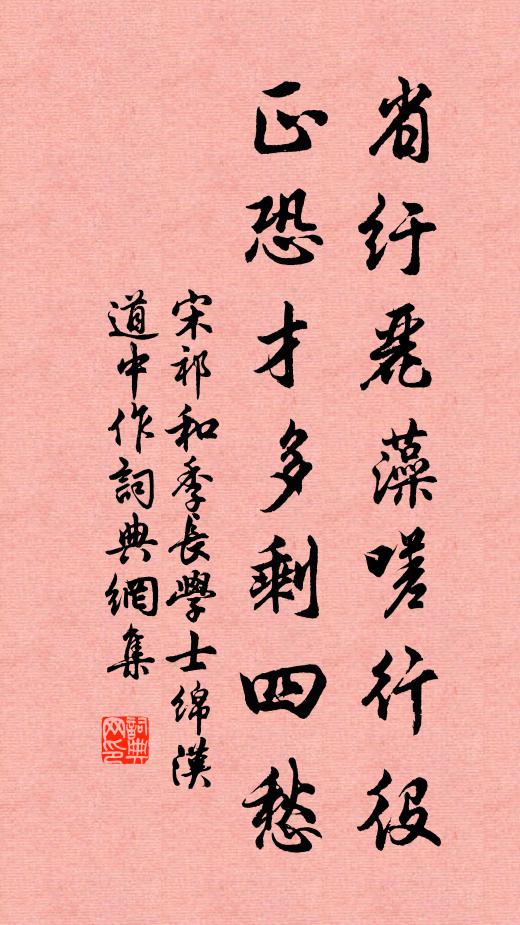 省纡麗藻嗟行役
正恐才多剩四愁
宋祁和季長學士綿漢
道中作詞典網集
詞典網印